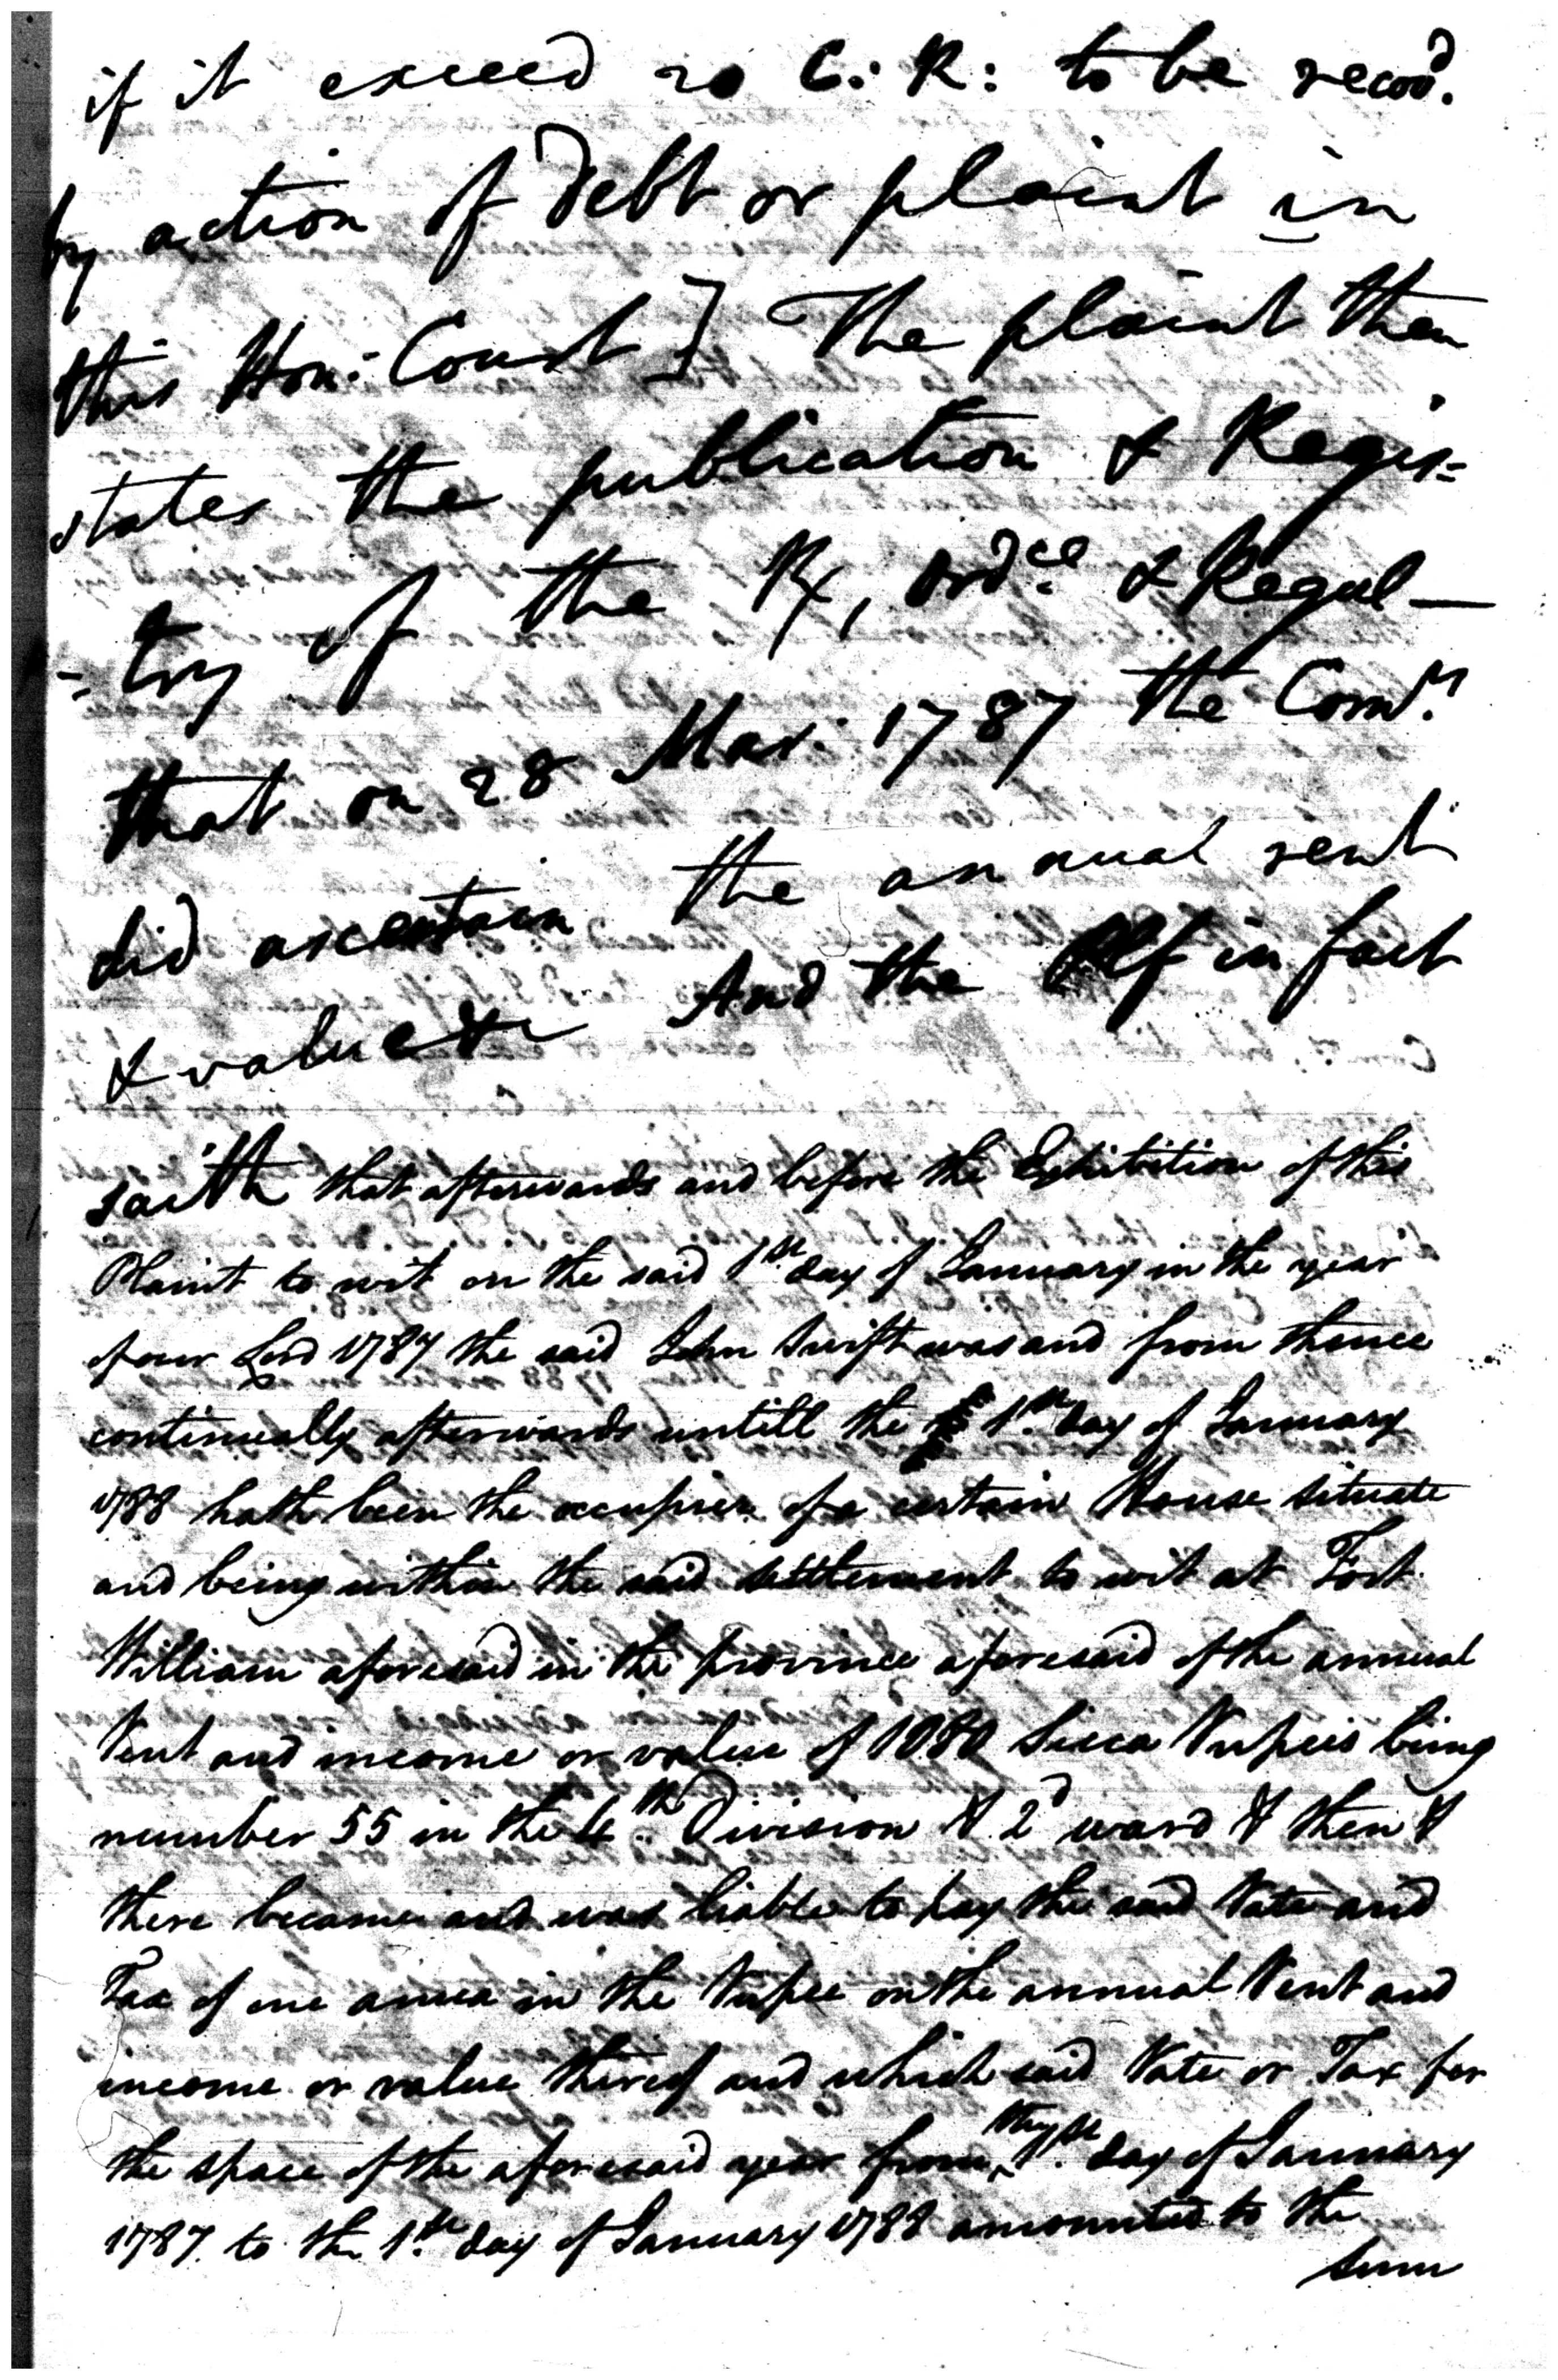 if it exceed 20 C: R: to be recod.
by action of Debt or plaint in
this Hon: Court] The plaint then
states the publication & Regis=
=try of the R, Ordce & Regul—
that on 28 Mar: 1787 the Comrs
did ascertain the annual rent
& value &c And the Plf in fact
saith that afterwards and before the Exhibition of this
Plaint to wit on the said 1st day of January in the year
of our Lord 1787 the said John Swift was and from thence
continually afterwards untill the 1st day of January
1788 hath been the occupier of a certain House situate
and being within the said settlement to wit at Fort
William aforesaid in the province aforesaid of the annual
Rent and income or value of 1080 Sicca Rupees being
number 55 in the 4th Division & 2d ward & then &
there became and was liable to pay the said Rate and
Tax of one anna in the Rupee on the annual Rent and
income or value thereof and which said Rate or Tax for
the space of the aforesaid year from the 1st day of January
1787 to the 1st day of January 1788 amounted to the
sum